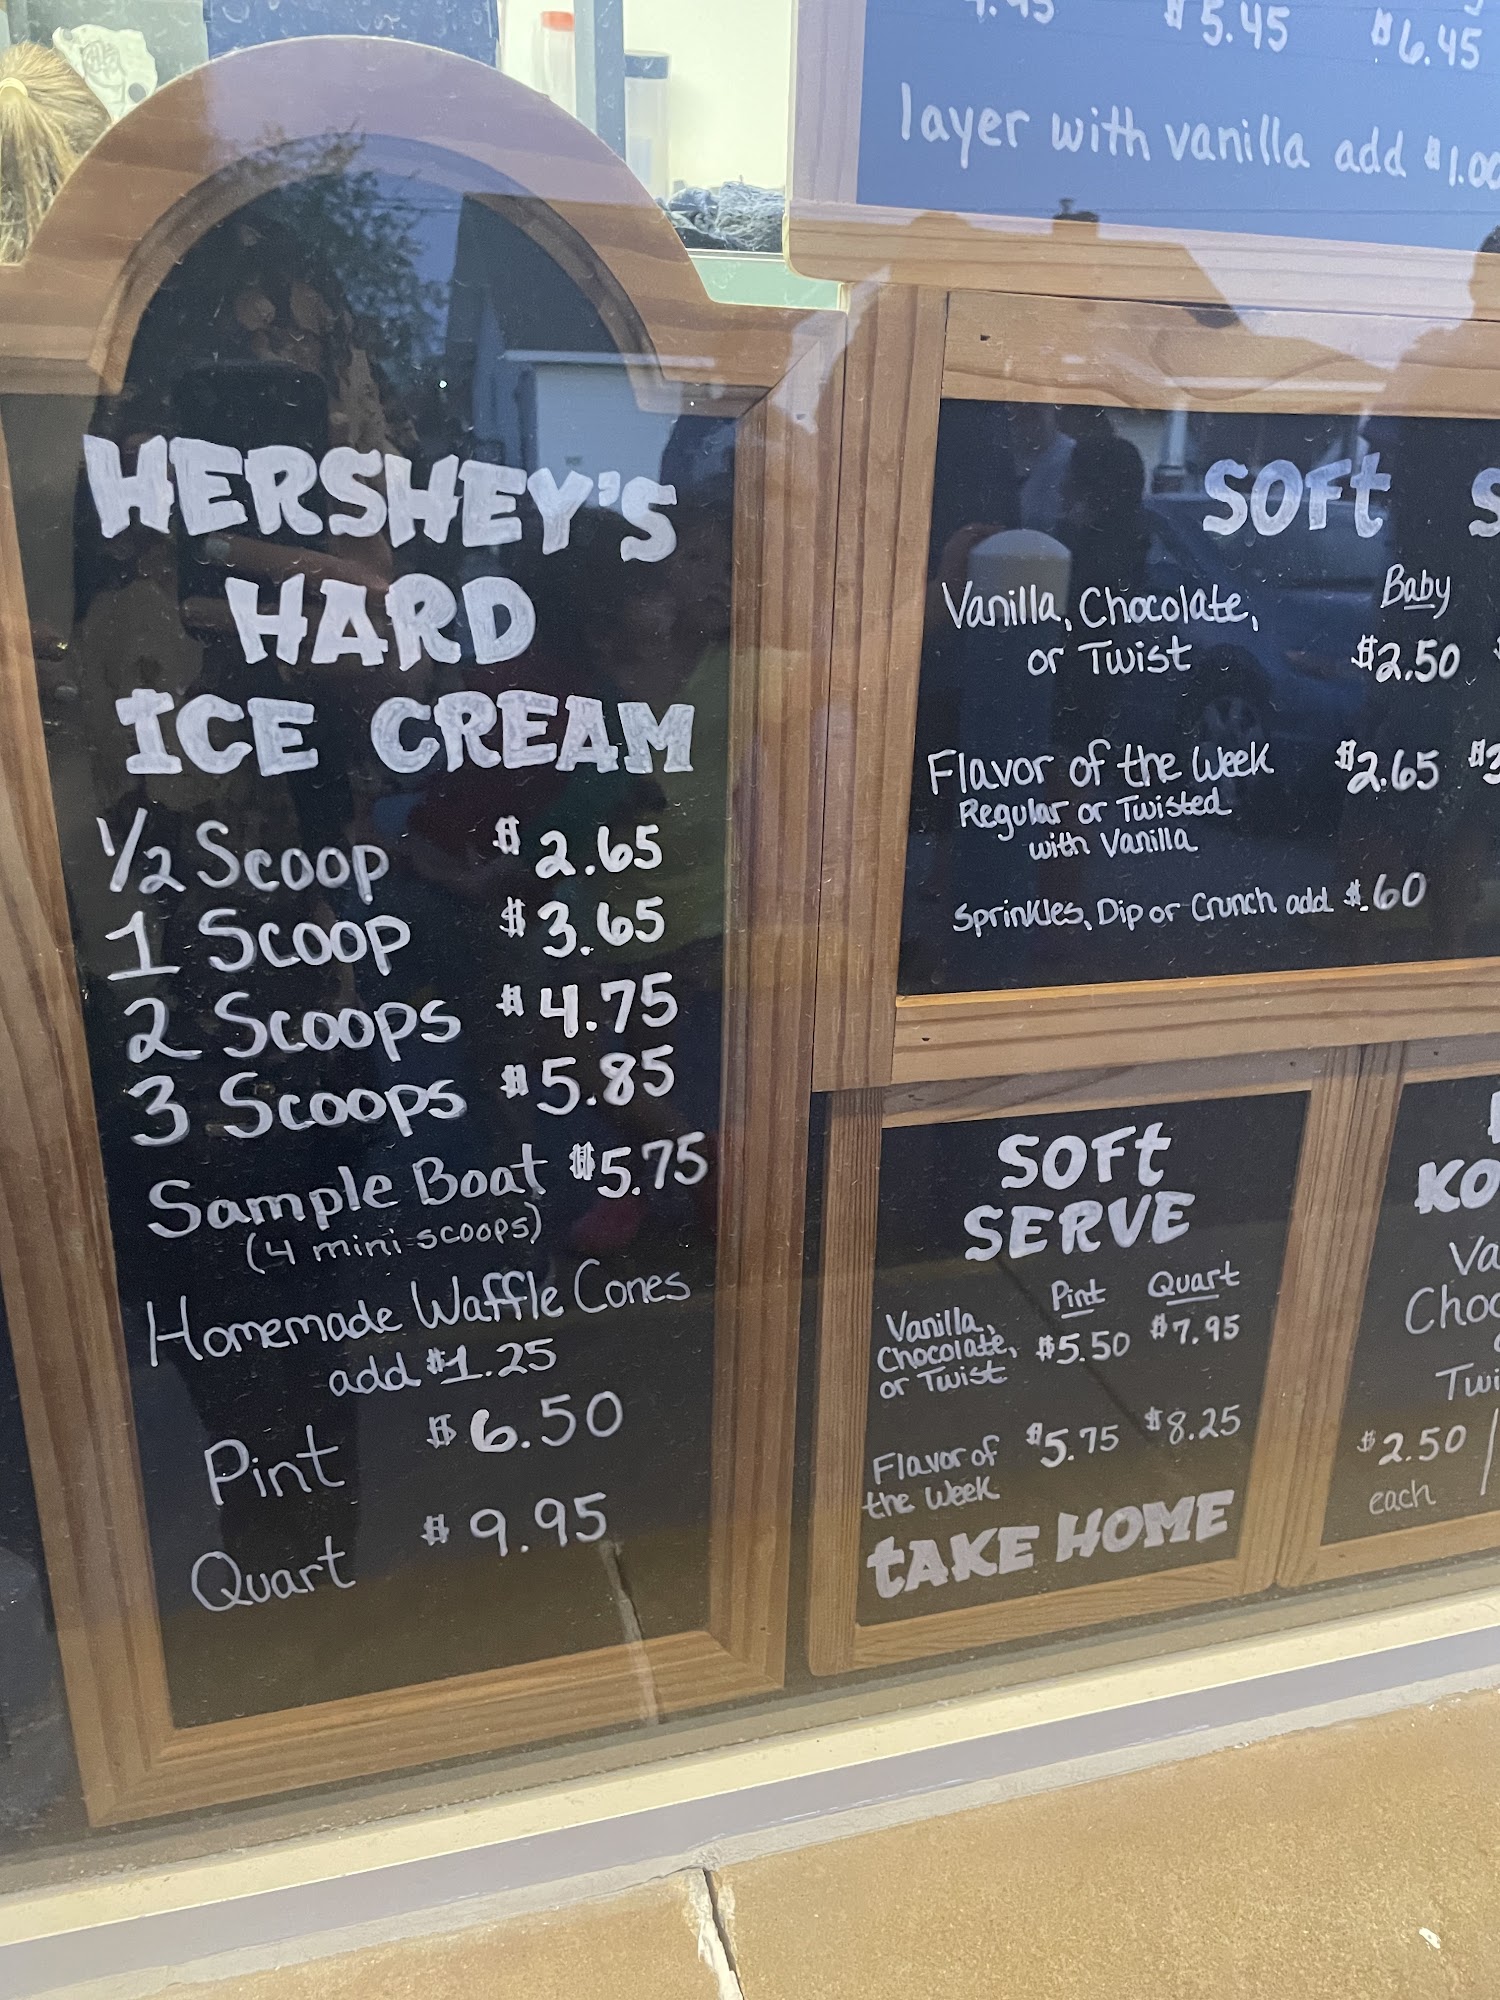 HERSHEY'S
HARD
ICE CREAM
1/2 Scoop $2.65
1 Scoop $3.65
2 Scoops $4.75
3 Scoops $5.85
Sample Boat $5.75
(4 mini-scoops)
Homemade Waffle Cones
add $1.25
Pint $6.50
Quart $9.95
$5.45 $6.45
layer with vanilla add $1.00
SOFt
Baby
Vanilla, Chocolate,
or Twist $2.50
Flavor of the Week $2.65
Regular or Twisted
with Vanilla
Sprinkles, Dip or Crunch add $.60
SOFt
SERVE
Pint Quart
Vanilla,
Chocolate, $5.50 $7.95
or Twist
Flavor of $5.75 $8.25
the Week
tAKE HOME
$2.50
each